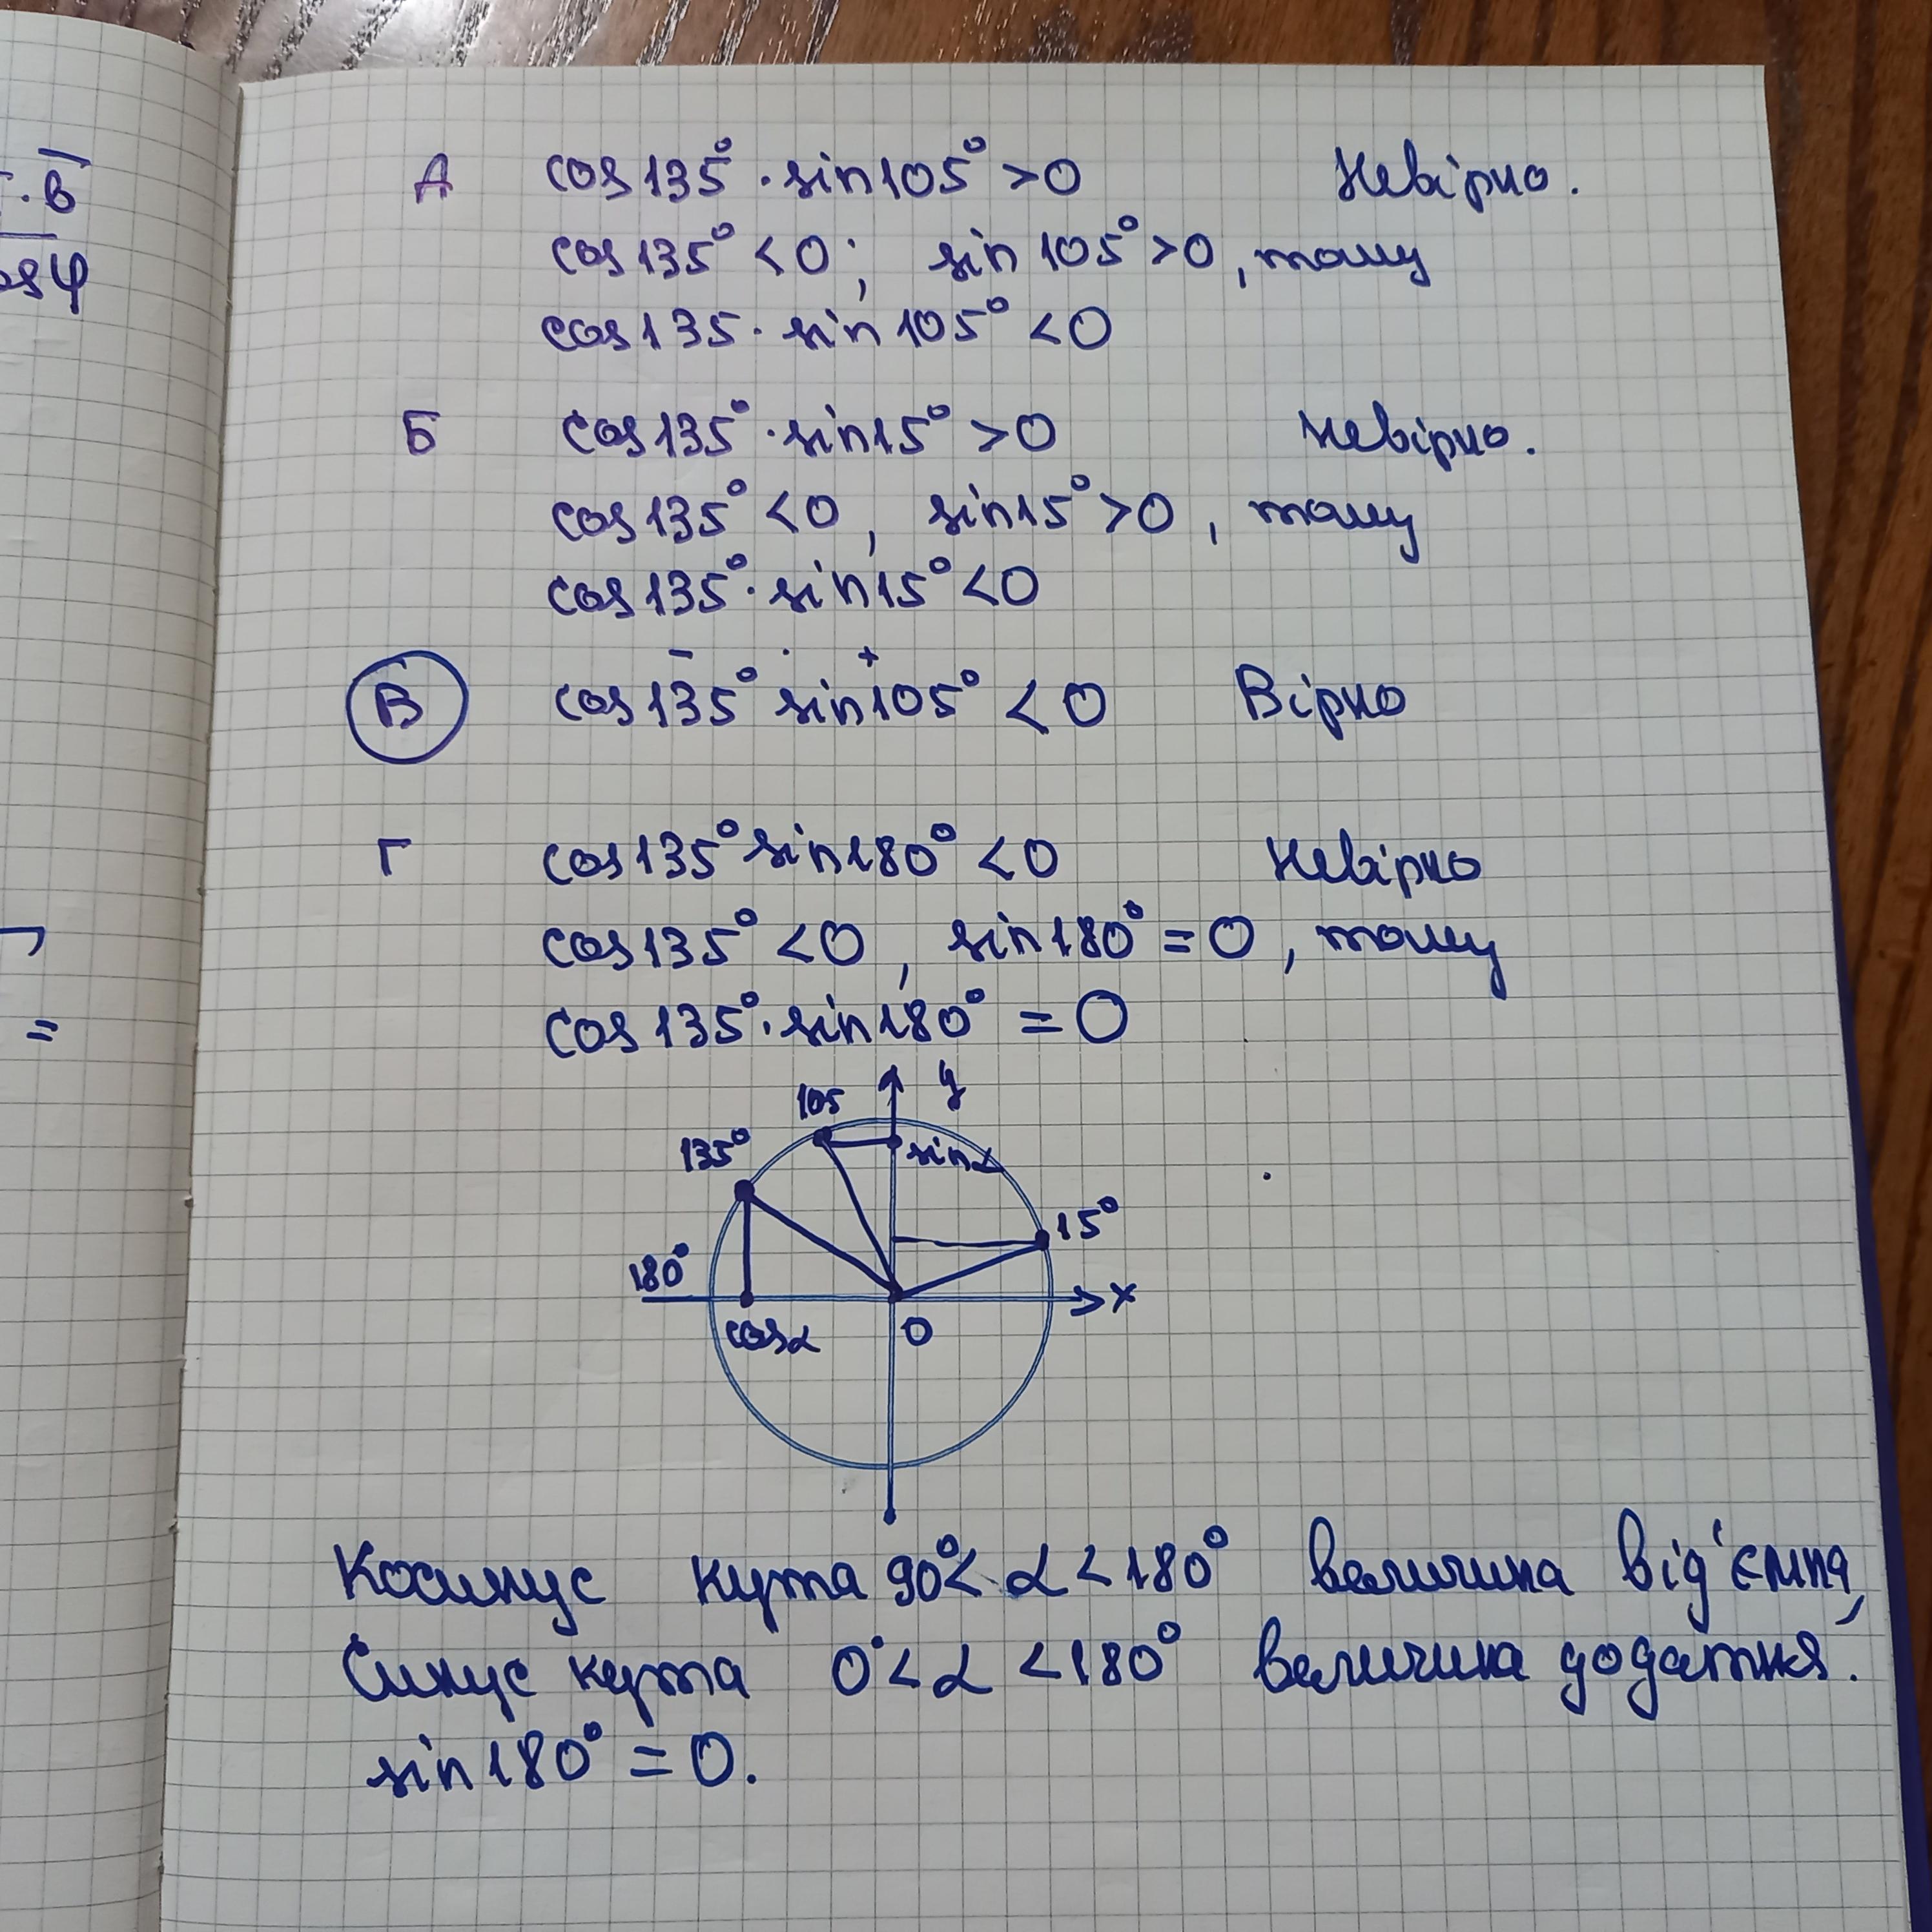 · в
osφ
=
А cos135° · sin105° > 0 Невірно.
cos135° < 0; sin 105° > 0, тому
cos135 · sin 105° < 0
Б cos135° · sin15° > 0 Невірно.
cos135° < 0, sin15° > 0, тому
cos135° · sin15° < 0
- · +
В cos135° sin105° < 0 Вірно
Г cos135° sin180° < 0 Невірно
cos135° < 0, sin180° = 0, тому
cos135° · sin180° = 0
105 y
135° sinα
15°
180° x
cosα O
Косинус кута 90° < α < 180° величина від'ємна,
Синус кута 0° < α < 180° величина додатня.
sin180° = 0.